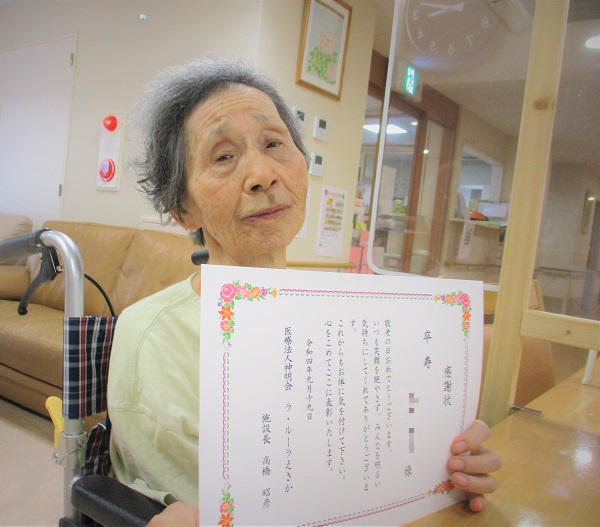 感謝状
卒寿
様
敬老の日おめでとうございます。
いつも笑顔を絶やさず、みんなを明るい
気持ちにしてくれてありがとうございま
す。
これからもお体に気を付けて下さい。
心をこめてここに表彰いたします。
令和四年九月十九日
医療法人神明会 ラ・ルーラえさか
施設長 高橋 昭彦